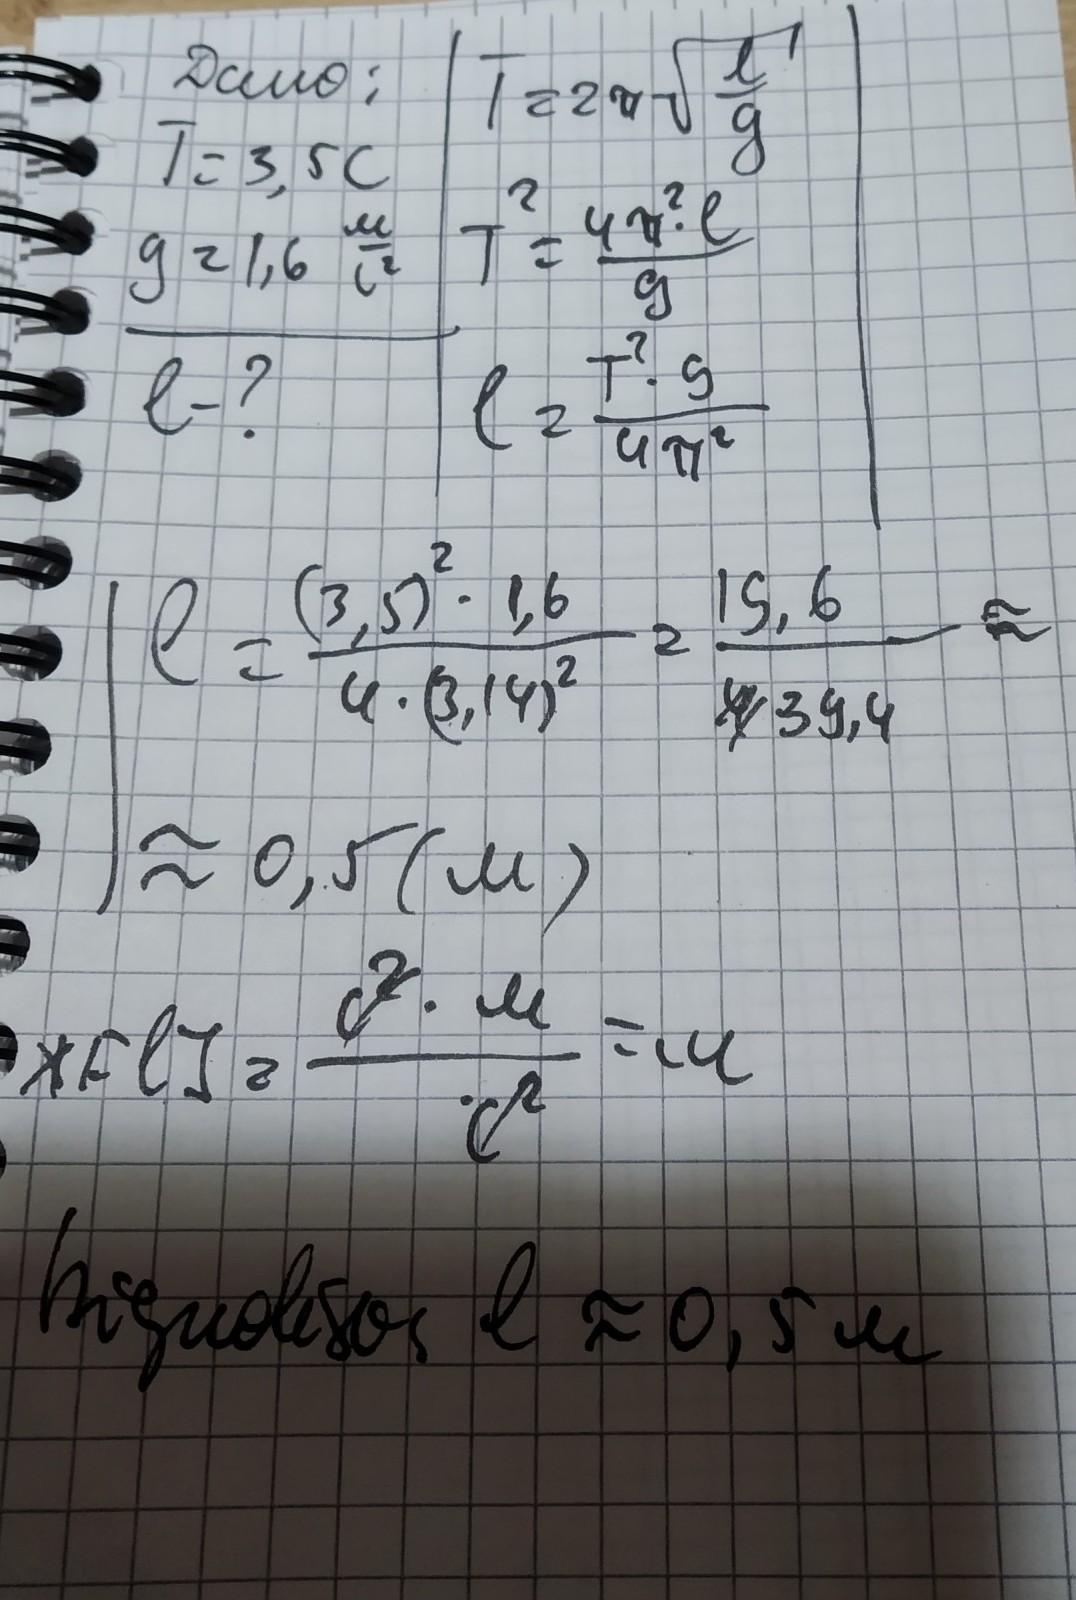 Дано:
T = 3,5 с
g = 1,6 м/с²
l - ?
T = 2π√(l/g)
T² = (4π²·l)/g
l = (T²·g)/(4π²)
l = ((3,5)²·1,6)/(4·(3,14)²) = 19,6/39,4 ≈
≈ 0,5 (м)
*[l] = (с²·м)/с² = м
Відповідь: l ≈ 0,5 м